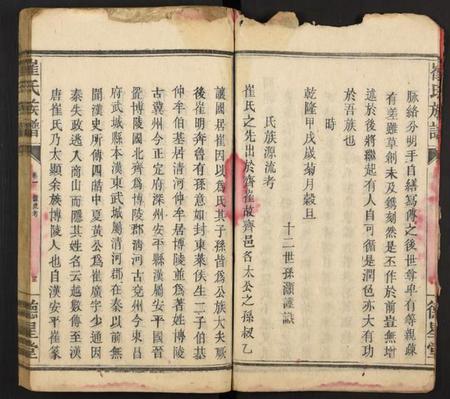 崔氏族譜
脉絡分明手自繕寫傳之後世尊卑有等親疎
有差雖草創未及鐫刻然是丕作於前豈無增
述於後將繼起有人自可循是潤色亦大有功
於吾族也
時
乾隆甲戌歲菊月穀旦
十二世孫灝謹識
氏族源流考
崔氏之先出於齊崔故齊邑名太公之孫叔乙
讓國居崔因以為氏其子孫皆為公族大夫厥
後崔明奔魯有孫意如封東萊侯生二子伯基
仲牟伯基居清河仲牟居博陵並為著姓博陵
古冀州今正定府深州安平縣漢屬安平國晉
置博陵國北齊為博陵郡清河古兗州今東昌
府武城縣本漢東武城屬清河郡在秦以前無
聞漢史所傳四皓中夏黃公為崔廣字少通因
秦失政逃入商山而隱其姓名云越數傳至漢
唐崔氏乃太顯余族博陵人也自漢安平崔篆
崔氏族譜
卷一
德星堂
德星堂